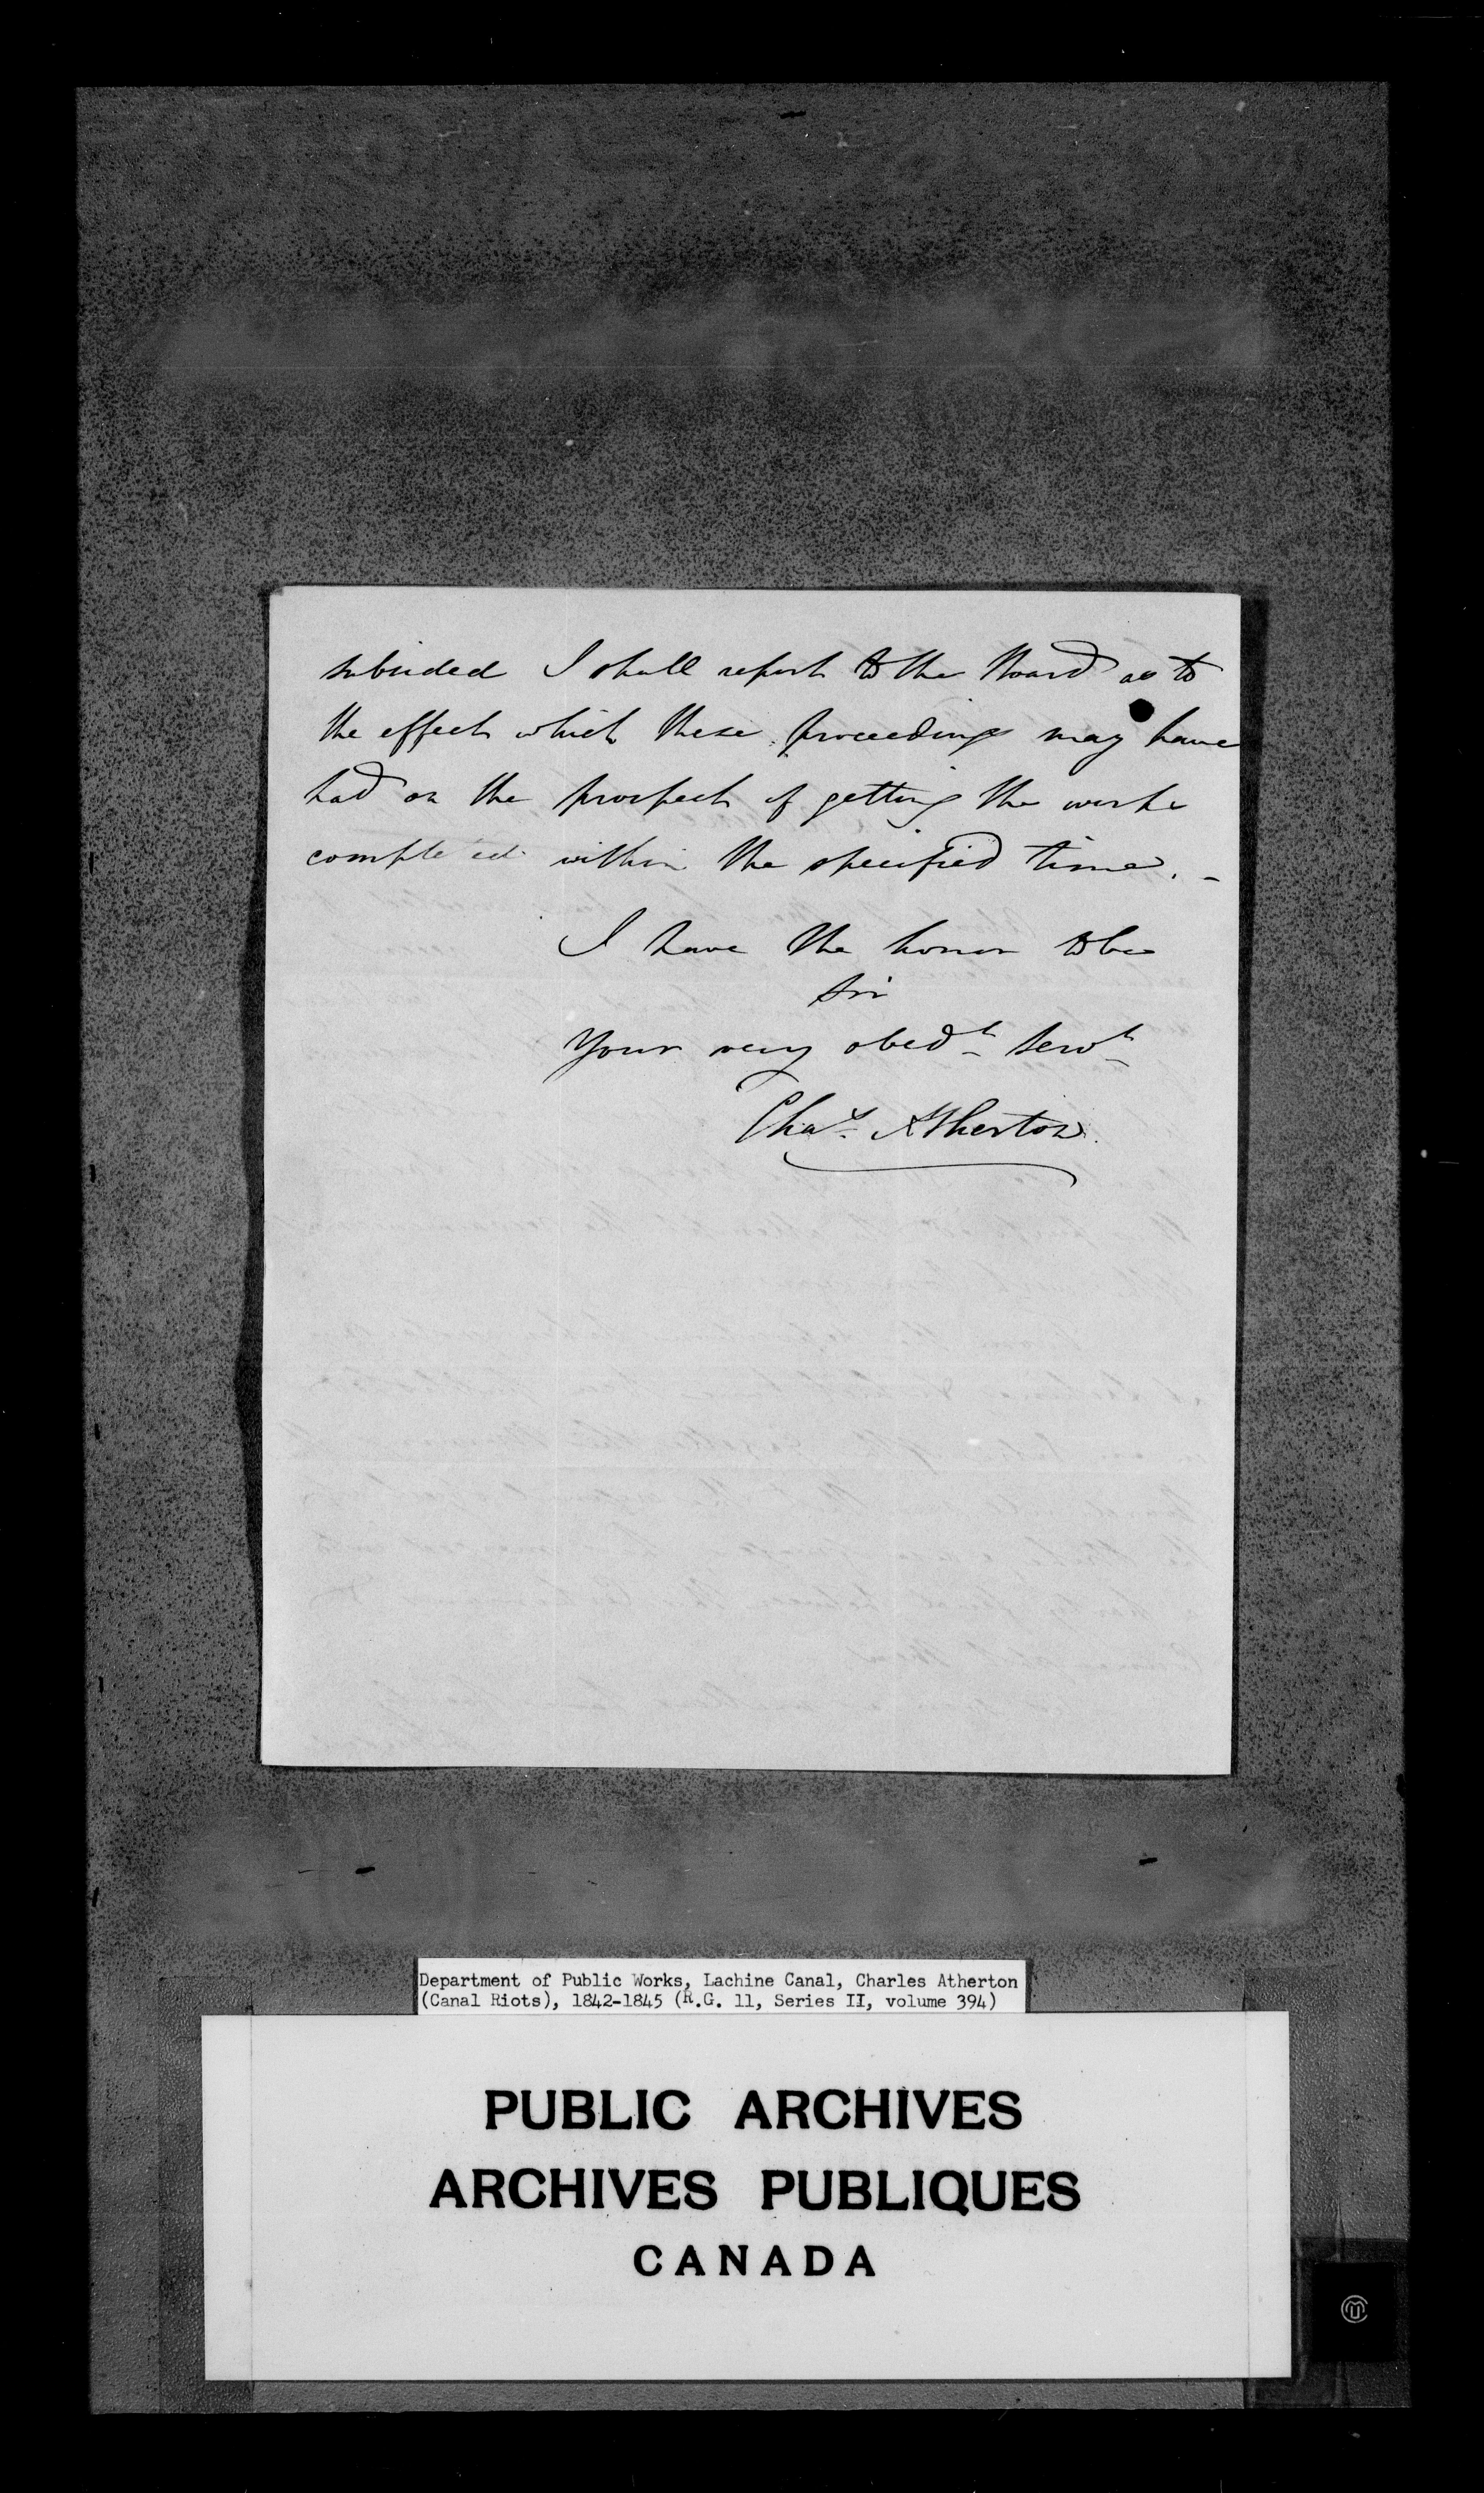 subsided I shall report to the Board as to
the effect which these proceedings may have
had on the prospect of getting the works
completed within the specified time. -
I have the honor to be
Sir
Your very obedt Servt
Chas Atherton
Department of Public Works, Lachine Canal, Charles Atherton
(Canal Riots), 1842-1845 (R.G. 11, Series II, volume 394)
PUBLIC ARCHIVES
ARCHIVES PUBLIQUES
CANADA